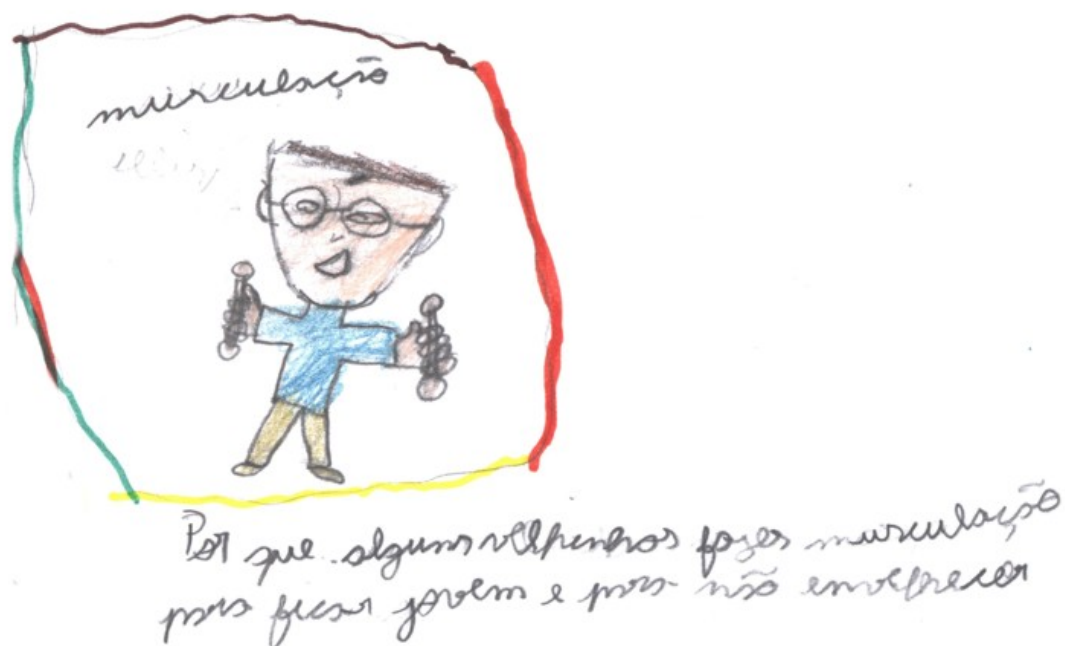 musculação
Por que alguns velhinhos fazes musculação
para ficar jovem e para não envelhecer